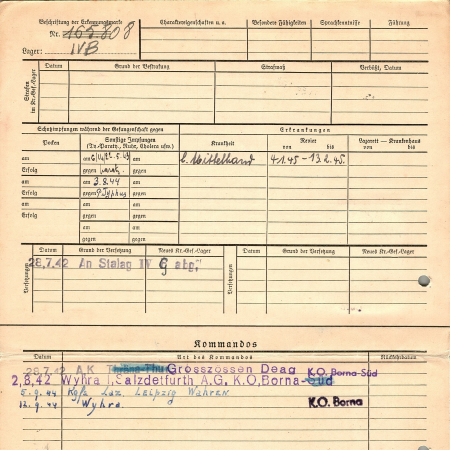 Beschriftung der Erkennungsmarke
Nr. 165808
Lager: IVB
Charaktereigenschaften u. a.
Besondere Fähigkeiten
Sprachkenntnisse
Führung
Strafen im Kr.-Gef.-Lager
Datum
Grund der Bestrafung
Strafmaß
Verbüßt, Datum
Schutzimpfungen während der Gefangenschaft gegen
Erkrankungen
Pocken
Sonstige Impfungen
(Ty.-Paraty., Ruhr, Cholera usw.)
Krankheit
Revier
von bis
Lazarett — Krankenhaus
von bis
am
am
Erfolg
gegen
l. Mittelhand
4.1.45 – 13.2.45.
am
am 3.8.44
Erfolg
gegen
am
am
Erfolg
gegen
am
gegen
Versetzungen
Datum
Grund der Versetzung
Neues Kr.-Gef.-Lager
Versetzungen
Datum
Grund der Versetzung
Neues Kr.-Gef.-Lager
28.7.42 An Stalag IV G abg.
Kommandos
Datum
Art des Kommandos
Rückkehrdatum
28.7.42 A.K Grosszössen Deag K.O. Borna-Süd
2.8.42 Wyhra I, Salzdetfurth A.G. K.O, Borna-Süd
5.9.44 Kgf. Laz. Leipzig Wahren
12.9.44 Wyhra. K.O. Borna